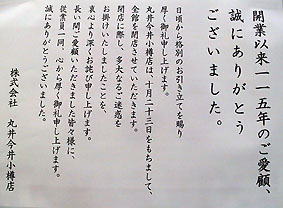 開業以来一一五年のご愛顧、
誠にありがとう
ございました。
日頃から格別のお引き立てを賜り
厚く御礼申し上げます。
丸井今井小樽店は、十月二十三日をもちまして、
全館を閉店させていただきます。
閉店に際し、多大なるご迷惑を
お掛けいたしましたことを、
衷心より深くお詫び申し上げます。
長い間ご愛顧いただきました皆々様に、
従業員一同、心から厚く御礼申し上げます。
誠にありがとうございました。
株式会社 丸井今井小樽店